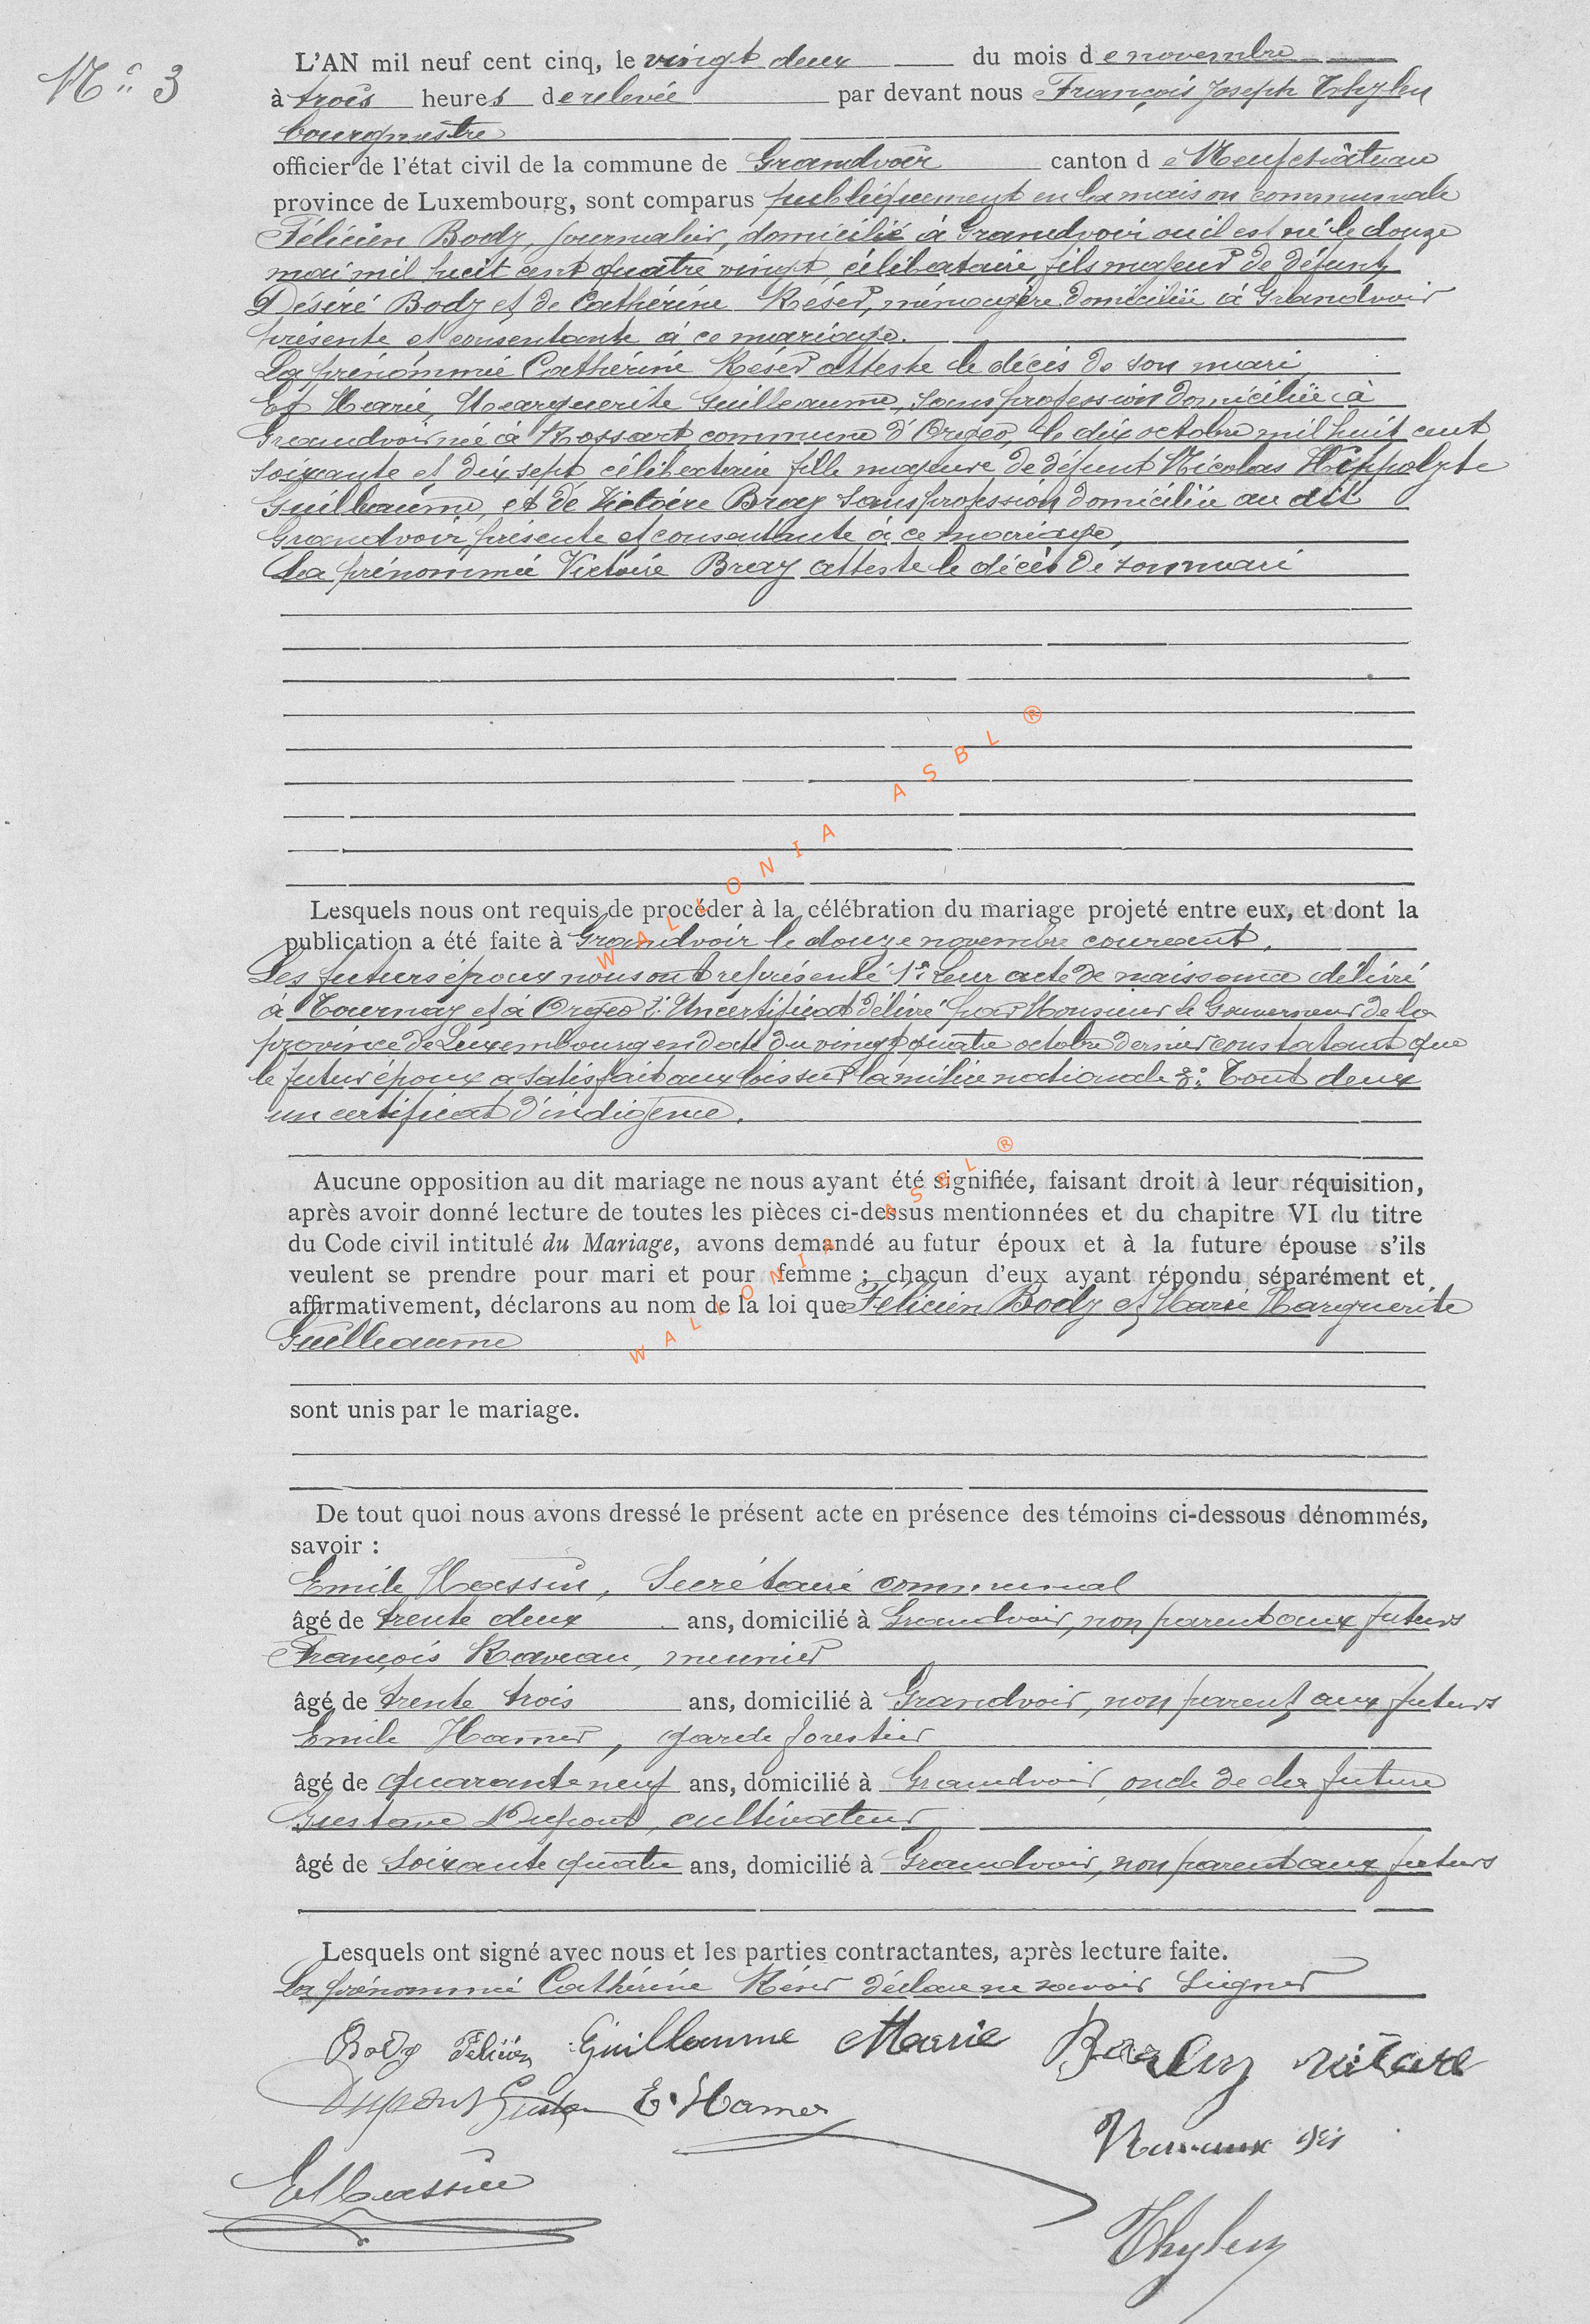 N° 3
L'AN mil neuf cent cinq, le vingt deux du mois de novembre
à trois heures de relevée par devant nous François Joseph Thylen
bourgmestre
officier de l'état civil de la commune de Grandvoir canton de Neufchâteau
province de Luxembourg, sont comparus publiquement en la maison communale
Félicien Body, journalier, domicilié à Grandvoir où il est né le douze
mai mil huit cent quatre vingt, célibataire, fils majeur de défunt
Désiré Body et de Cathérine Réser, ménagère domiciliée à Grandvoir
présente et consentante à ce mariage.
La prénommée Cathérine Réser atteste le décès de son mari
Et Marie, Marguerite Guilleaume, sans profession domiciliée à
Grandvoir née à Rossart commune d'Orgeo, le dix octobre mil huit cent
soixante et dix sept célibataire fille majeure de défunt Nicolas Hippolyte
Guilleaume, et de Victoire Bray sans profession domiciliée au dit
Grandvoir, présente et consentante à ce mariage,
La prénommée Victoire Bray atteste le décès de son mari
Lesquels nous ont requis de procéder à la célébration du mariage projeté entre eux, et dont la
publication a été faite à Grandvoir le douze novembre courant.
Les futurs époux nous ont représenté 1° Leur acte de naissance délivré
à Tournay et à Orgeo 2° Un certificat délivré par Monsieur le Gouverneur de la
province de Luxembourg en date du vingt quatre octobre dernier constatant que
le futur époux a satisfait aux lois sur la milice nationale 3° Tout deux
un certificat d'indigence.
Aucune opposition au dit mariage ne nous ayant été signifiée, faisant droit à leur réquisition,
après avoir donné lecture de toutes les pièces ci-dessus mentionnées et du chapitre VI du titre
du Code civil intitulé du Mariage, avons demandé au futur époux et à la future épouse s'ils
veulent se prendre pour mari et pour femme ; chacun d'eux ayant répondu séparément et
affirmativement, déclarons au nom de la loi que Félicien Body et Marie Marguerite
Guilleaume
sont unis par le mariage.
De tout quoi nous avons dressé le présent acte en présence des témoins ci-dessous dénommés,
savoir :
Emile Massin, Secrétaire communal
âgé de trente deux ans, domicilié à Grandvoir, non parent aux futurs
François Raveau, meunier
âgé de trente trois ans, domicilié à Grandvoir, non parent aux futurs
Emile Hamer, garde forestier
âgé de quarante neuf ans, domicilié à Grandvoir, oncle de la future
Gustave Dupont, cultivateur
âgé de soixante quatre ans, domicilié à Grandvoir, non parent aux futurs
Lesquels ont signé avec nous et les parties contractantes, après lecture faite.
La prénommée Cathérine Réser déclare ne savoir signer
Body Félicien Guillaume Marie
Dupont Gustave E. Hamer
E Massin
Thylen
WALLONIA ASBL ®
WALLONIA ASBL ®